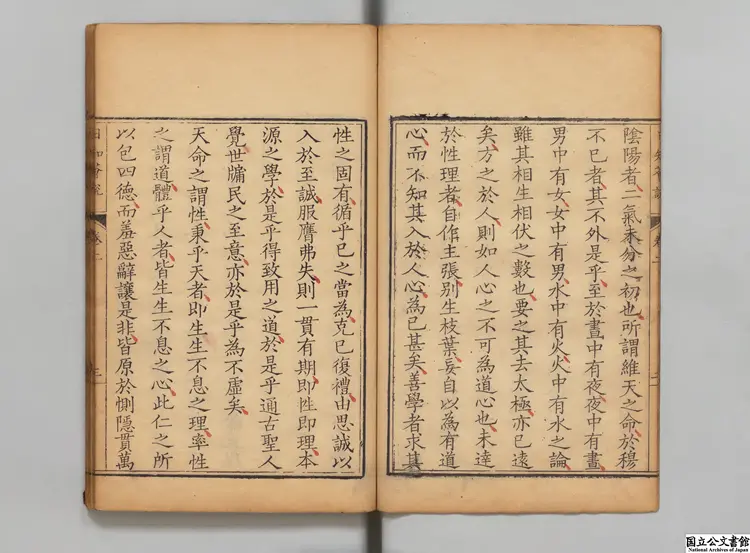 陰陽者二氣未分之初也所謂維天之命於穆
不已者其不外是乎至於晝中有夜夜中有晝
男中有女女中有男水中有火火中有水之論
雖其相生相伏之數也要之其去太極亦已遠
矣方之於人則如人心之不可為道心也未達
於性理者自作主張別生枝葉妄自以為有道
心而不知其入於人心為已甚矣善學者求其
性之固有循乎已之當為克已復禮由思誠以
入於至誠服膺弗失則一貫有期即性即理本
源之學於是乎得致用之道於是乎通古聖人
覺世牖民之至意亦於是乎為不虛矣
天命之謂性秉乎天者即生生不息之理率性
之謂道體乎人者皆生生不息之心此仁之所
以包四德而羞惡辭讓是非皆原於惻隱貫萬
国立公文書館
National Archives of Japan